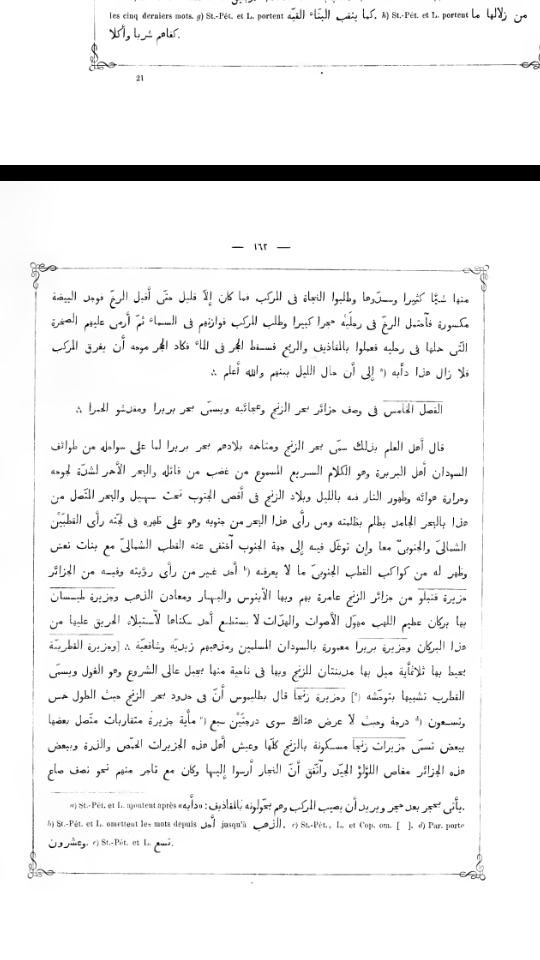 les cinq derniers mots. g) St.-Pét. et L. portent كما ينقب البنّاء القبّه. h) St.-Pét. et L. portent من زلالها ما
كفاهم شربا وأكلا.
21
— ١٦٢ —
منها شيًا كثيرا وطلبوا النجاة فى المركب فما كان إلاّ قليل حتّى أقبل الرخّ فوجد البيضة
مكسورة فأحتمل الرخّ فى رجليْه حجرا كبيرا وطلب المركب فوازنهم فى السماء ثمّ أرمى عليهم الصخرة
الّتى حملها فى رجليه فعملوا بالمقاذيف والريح فسقط الحجر فى الماء فكاد الحجر موجه أن يغرق المركب
فلا زال هذا دأبه (a إلى أن حال الليل بينهم والله أعلم ∴
الفصل الخامس فى وصف جزائر بحر الزنج وعجائبه ويسمّى بحر بربرا ومقدشو الحمرا ∴
قال أهل العلم بذلك سمّى بحر الزنج ومتاخمه بلادهم بحر بربرا لما على سواحله من طوائف
السودان أهل البربرة وهو الكلام السريع المسموع من غضب من قائله والبحر الأحمر لشدّة لجوجه
وحرارة هوائه وظهور النار فيه بالليل وبلاد الزنج فى أقصى الجنوب تحت سهيل والبحر المتّصل من
هذا بالبحر الجامد يظلم بظلمته ومن رأى هذا البحر من جنوبه وهو على ظهره فى لجّته رأى القطبيْن
الشمالىّ والجنوبىّ معا وإن توغّل فيه إلى جهة الجنوب أختفى عنه القطب الشمالىّ مع بنات نعش
وظهر له من كواكب القطب الجنوبىّ ما لا يعرفه (b أحد غير من رأى رؤيته وفيه من الجزائر
جزيرة قنبلو من جزائر الزنج عامرة بهم وبها الآبنوس والبهار ومعادن الذهب وجزيرة
بها بركان عظيم اللهب مهوّل الأصوات والهدّات لا يستطيع أحد سكناها لاستيلاء الحريق عليها من
هذا البركان وجزيرة بربرا معمورة بالسودان المسلمين ومذهبهم زيديّه وشافعيّة ∴ [وجزيرة القطربيّة
يحيط بها ثلاثمأية ميل بها مدينتان للزنج وبها فى ناحية منها بجبل عالى الشروع وهو الغول ويسمّى
القطرب تشبيها بتوحّشه (c] وجزيرة زنجبا قال بطليموس أنّ فى حدود بحر الزنج حيث الطول خمس
وتسعون (d درجة وحيث لا عرض هناك سوى درجتيْن سبع (e مأية جزيرة متقاربات متّصل بعضها
ببعض تسمّى جزيرات زنجبا مسكونة بالزنج كلّها وعيش أهل هذه الجزيرات الحمّص والذرة وببعض
هذه الجزائر مغاص اللؤلؤ الجيّد وأتّفق أنّ التجار أرسوا إليها وكان مع تاجر منهم نحو نصف صاع
a) St.-Pét. et L. ajoutent après «دأبه»: يأتى بحجر بعد حجر ويريد أن يصيب المركب وهم يحوّلونه بالمقاذيف.
b) St.-Pét. et L. omettent les mots depuis أحد jusqu'à الذهب. c) St.-Pét., L. et Cop. om. [ ]. d) Par. porte
وعشرون. e) St.-Pét. et L. تسع.